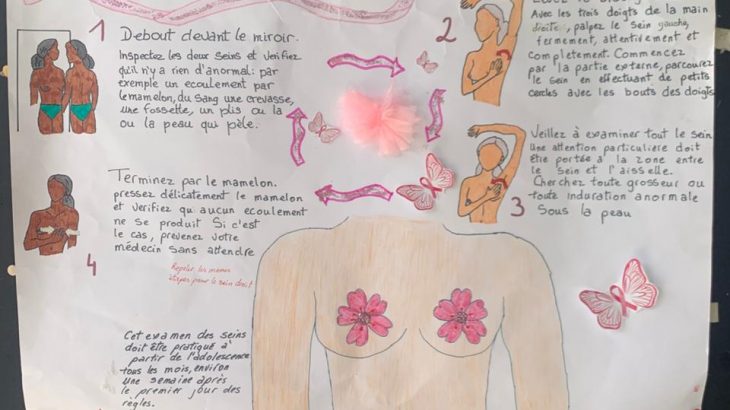 1
Debout devant le miroir.
Inspectez les deux seins et verifiez
qu'il n'y a rien d'anormal: par
exemple un ecoulement par
lemamelon, du sang une crevasse,
une fossette, un plis ou la
ou la peau qui pèle.
2
Avec les trois doigts de la main
droite, palpez le sein gauche,
fermement, attentivement et
completement. Commencez
par la partie externe, parcourez
le sein en effectuant de petits
cercles avec les bouts des doigts
Veillez à examiner tout le sein
une attention particulière doit
être portée à la zone entre
le sein et l'aisselle.
Cherchez toute grosseur ou
toute induration anormale
sous la peau
3
Terminez par le mamelon.
pressez délicatement le mamelon
et verifiez qu'aucun ecoulement
ne se produit Si c'est
le cas, prevenez votre
médecin sans attendre
4
les memes
étapes pour le sein droit
Cet examen des seins
doit être pratiqué à
partir de l'adolescence
tous les mois, environ
une semaine après
le premier jour des
règles.